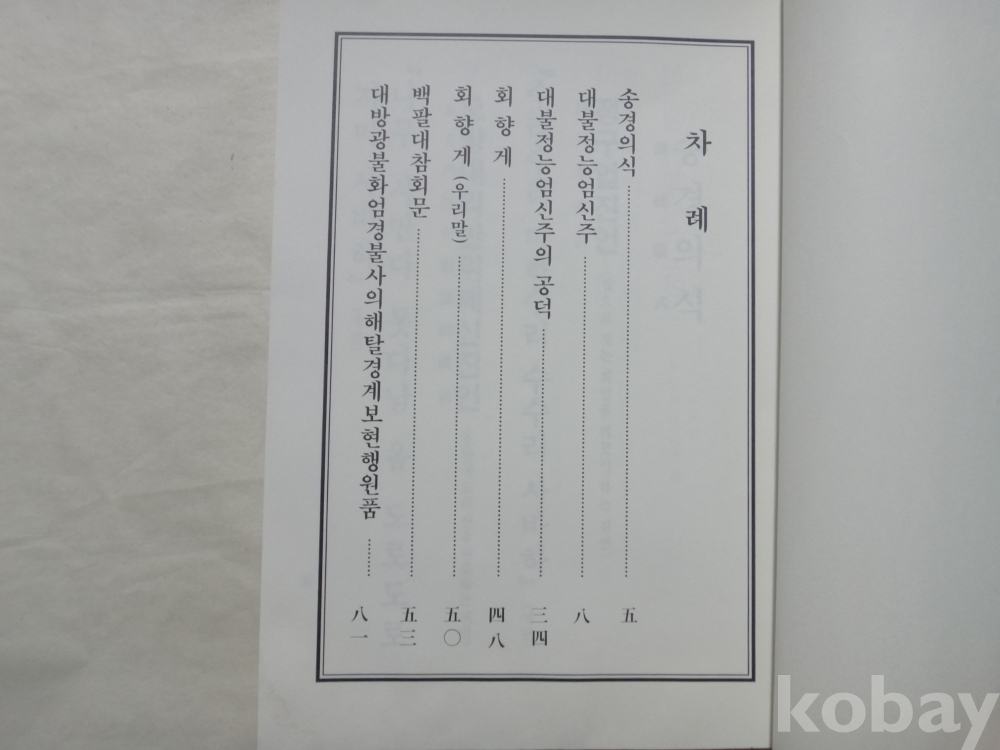 차례
송경의식 五
대불정능엄신주 八
대불정능엄신주의 공덕 三四
회향게 四八
회향게 (우리말) 五〇
백팔대참회문 五三
대방광불화엄경불사의해탈경계보현행원품 八一
kobay